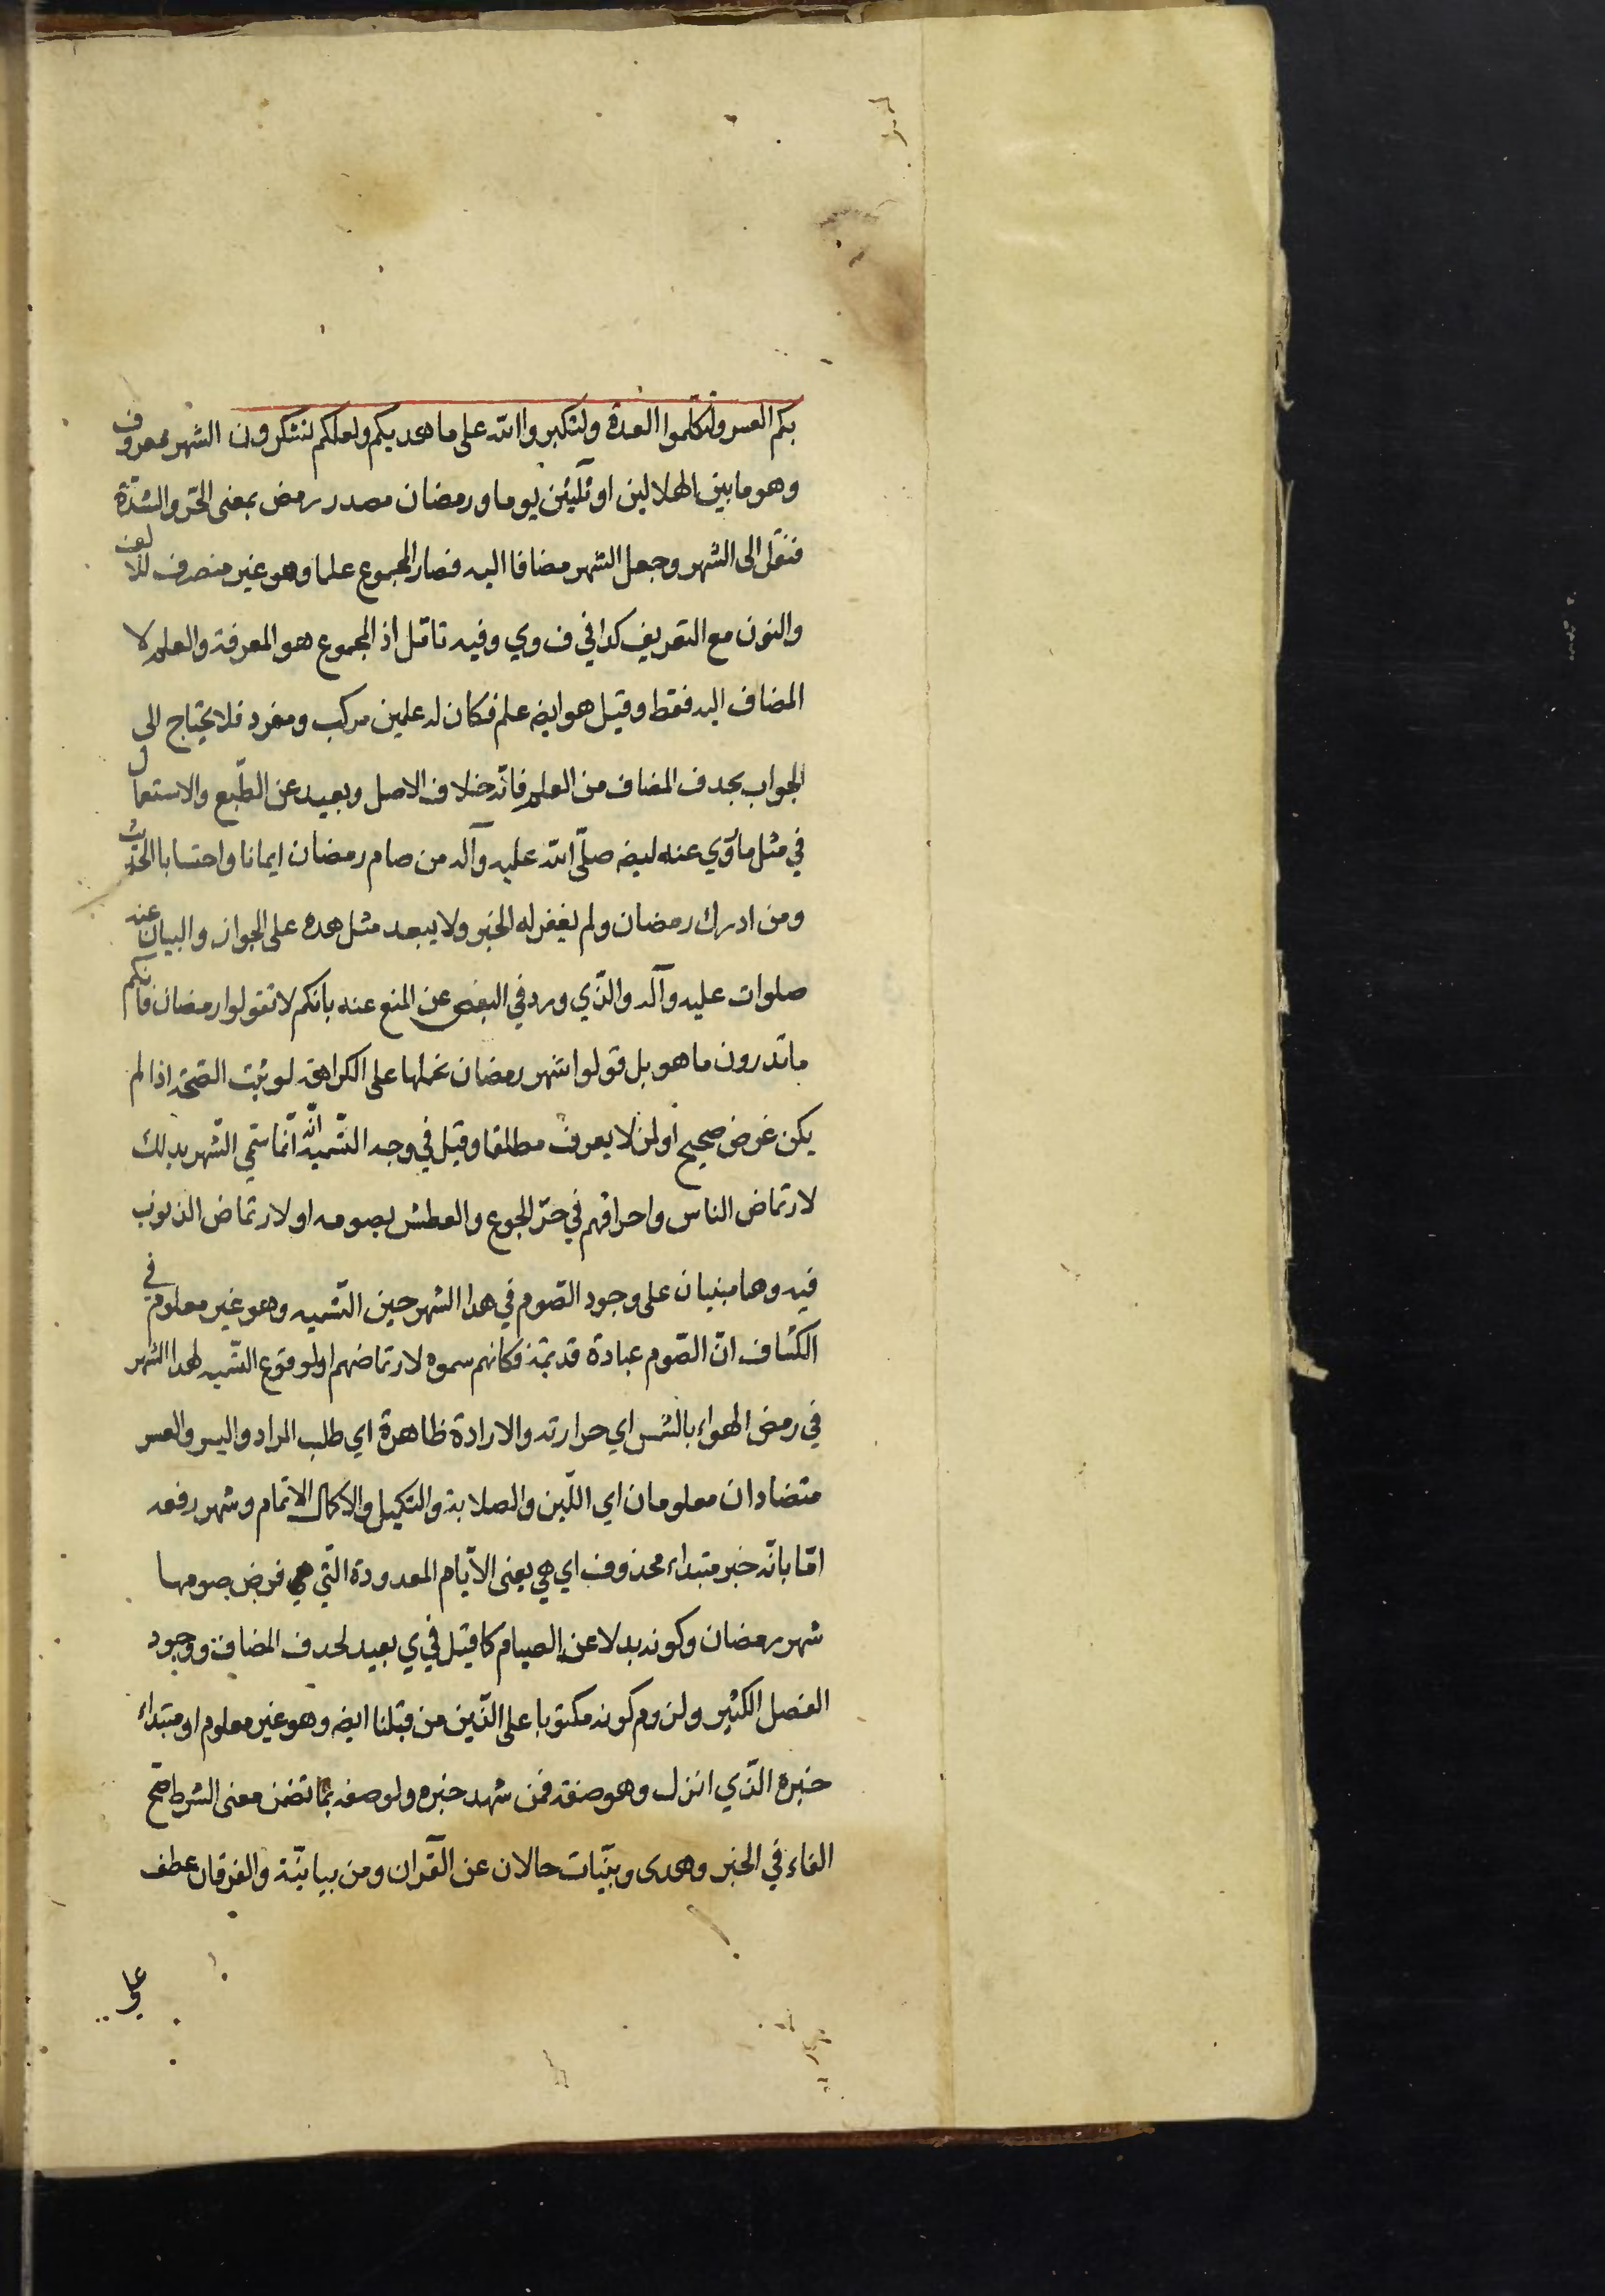 بكم العسر ولتكلموا العدة ولتكبروا الله على ما هديكم ولعلكم تشكرون الشهر معروف
وهو ما بين الهلالين او ثلثين يوما ورمضان مصدر رمض بمعنى الحرّ والشدّة
فنقل الى الشهر وجعل الشهر مضافا اليه فصار المجموع علما وهو غير منصرف للالف
والنون مع التعريف كذا في ف وي وفيه تامّل اذ المجموع هو المعرفة والعلم لا
المضاف اليه فقط وقيل هو ايضه علم فكان له علمين مركب ومفرد فلا يحتاج الى
الجواب بحذف المضاف من العلم فانّه خلاف الاصل وبعيد عن الطّبع والاستعمال
في مثل ما روي عنه ايضه صلّى الله عليه وآله من صام رمضان ايمانا واحتسابا الحديث
ومن ادرك رمضان ولم يغفر له الخبر ولا يبعد مثل هذه على الجواز والبيان عنه
صلوات عليه وآله والذّي ورد في البعض عن المنع عنه بانكم لا تقولوا رمضان فانكم
ما تدرون ما هو بل قولوا شهر رمضان نحملها على الكراهة لو ثبت الصّحّة اذا لم
يكن غرض صحيح او لمن لا يعرف مطلقا وقيل في وجه التّسميه انّه انّما سمّي الشّهر بذلك
لارتماض الناس واحراقهم في حرّ الجوع والعطش بصومه او لارتماض الذنوب
فيه وهما مبنيان على وجود الصّوم في هذا الشهر حين التّسميه وهو غير معلوم في
الكشاف انّ الصّوم عبادة قديمة فكانهم سموه لارتماضهم او لوقوع التّسميه لهذا الشهر
في رمض الهواء بالشمس اي حرارته والارادة ظاهرة اي طلب المراد واليسر والعسر
متضادان معلومان اي اللّين والصلابة والتكميل والاكمال الاتمام وشهر رفعه
امّا بانّه خبر مبتداء محذوف اي هي يعنى الايّام المعدودة الّتي هي فرض صومها
شهر رمضان وكونه بدلا عن الصيام كما قيل في ي بعيد لحذف المضاف ووجود
الفصل الكثير ولزوم كونه مكتوبا على الّذين من قبلنا ايضه وهو غير معلوم او مبتداء
خبره الّذي انزل وهو صفة فمن شهد خبره ولوصفه بما تضمن معنى الشرط صحّ
الفاء في الخبر وهدى وبيّنات حالان عن القرآن ومن بيانيّة والفرقان عطف
على